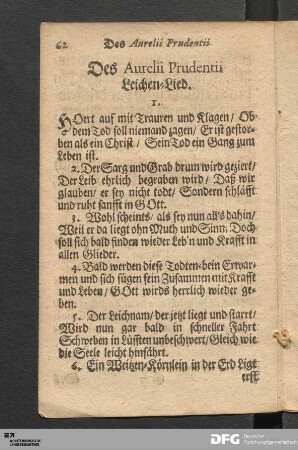 62 Des Aurelii Prudentii
Des Aurelii Prudentii
Leichen-Lied.
1.
HOrt auf mit Trauren und Klagen/ Ob
dem Tod soll niemand zagen/ Er ist gestor-
ben als ein Christ/ Sein Tod ein Gang zum
Leben ist.
2. Der Sarg und Grab drum wird geziert/
Der Leib ehrlich begraben wird/ Daß wir
glauben/ er sey nicht todt/ Sondern schläfft
und ruht sanfft in GOtt.
3. Wohl scheints/ als sey nun all's dahin/
Weil er da liegt ohn Muth und Sinn. Doch
soll sich bald finden wieder Leb'n und Krafft in
allen Glieder.
4. Bald werden diese Todten-bein Erwar-
men und sich fügen sein Zusammen mit Krafft
und Leben/ GOtt wirds herrlich wieder ge-
ben.
5. Der Leichnam/ der jetzt liegt und starrt/
Wird nun gar bald in schneller Fahrt
Schweben in Lüfften unbeschwert/ Gleich wie
die Seele leicht hinfährt.
6. Ein Weitzen-Körnlein in der Erd Ligt
erst
WÜRTTEMBERGISCHE
LANDESBIBLIOTHEK
DFG
Deutsche
Forschungsgemeinschaft